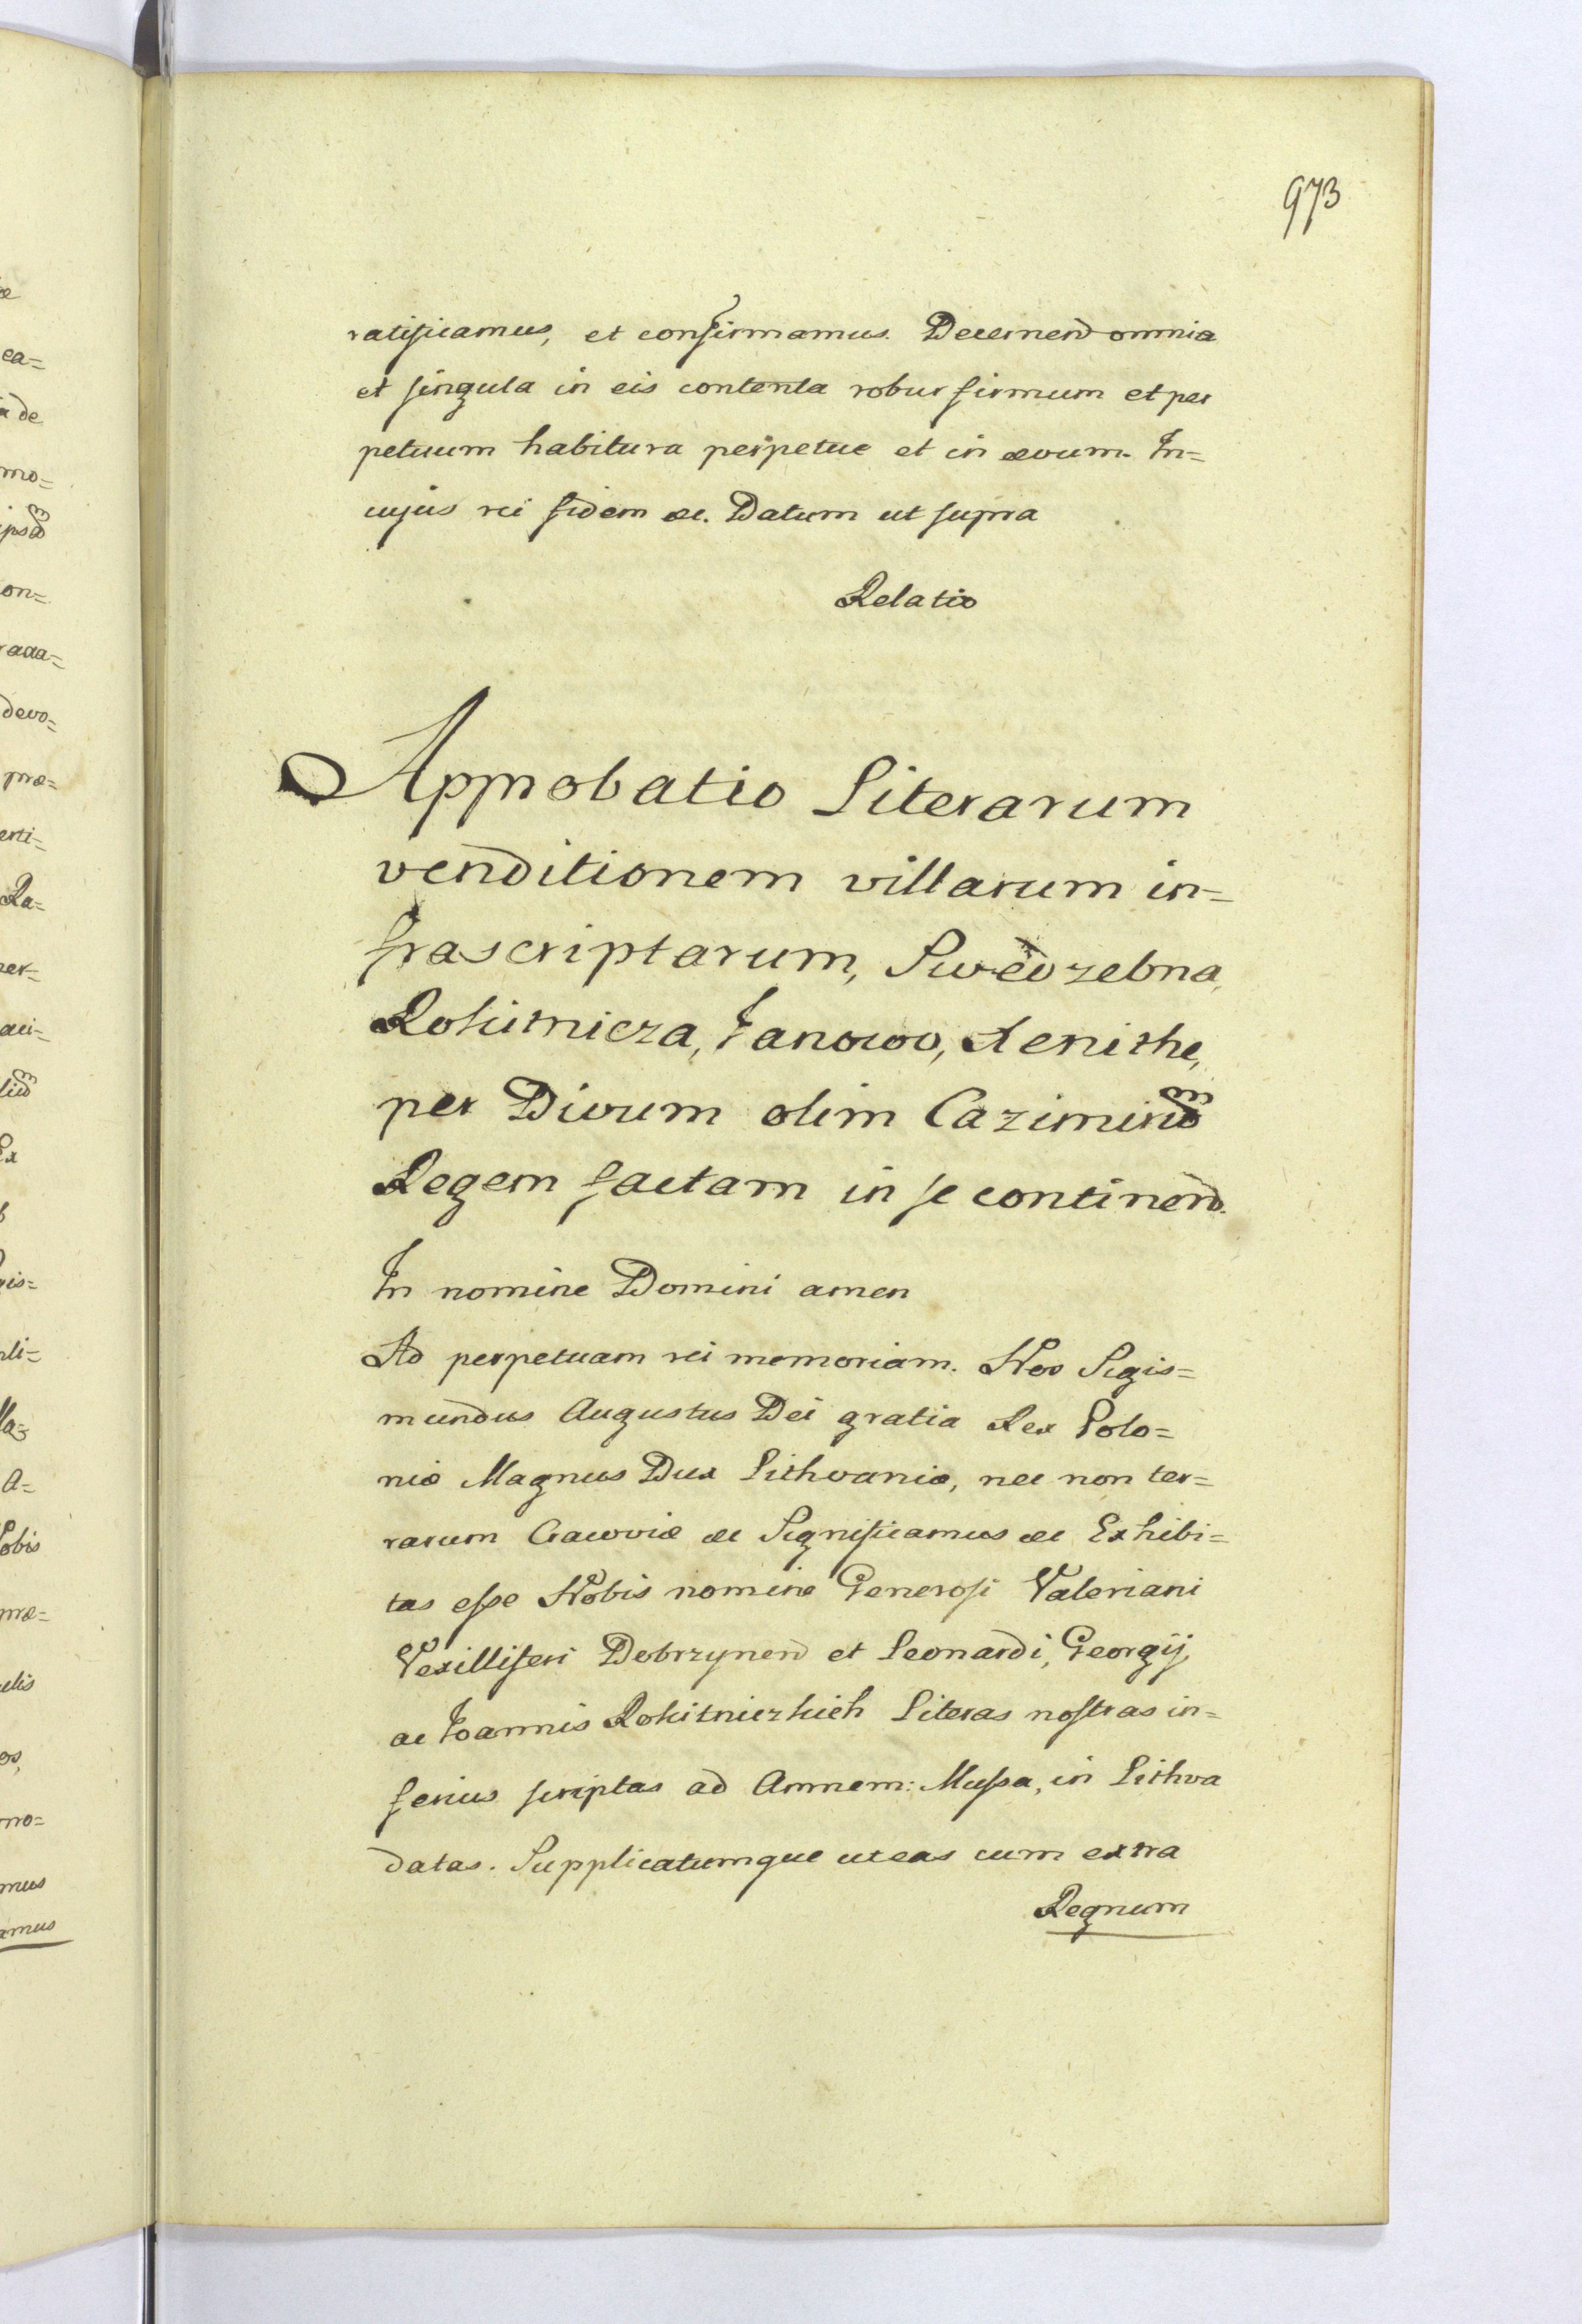 973
ratificamus, et confirmamus. Decernend omnia
et singula in eis contenta robur firmum et per
petuum habitura perpetue et in ævum. In=
cujus rei fidem &c. Datum ut supra
Relatio
Approbatio Literarum
venditionem villarum in=
frascriptarum, Swedzebna,
Rokitnicza, Janowo,
per Divum olim Cazimirum
Regem factam in se continend.
In nomine Domini amen
Ad perpetuam rei memoriam. Nos Sigis=
mundus Augustus Dei gratia Rex Polo=
niæ Magnus Dux Lithvaniæ, nec non ter=
rarum Cracoviæ &c Significamus &c Exhibi=
tas esse Nobis nomine Generosi Valeriani
Vexilliferi Dobrzynend et Leonardi, Georgij,
ac Joannis Rokitniczkich Literas nostras in=
ferius scriptas ad Amnem: Mussa, in Lithva
datas. Supplicatumque ut eas cum extra
Regnum